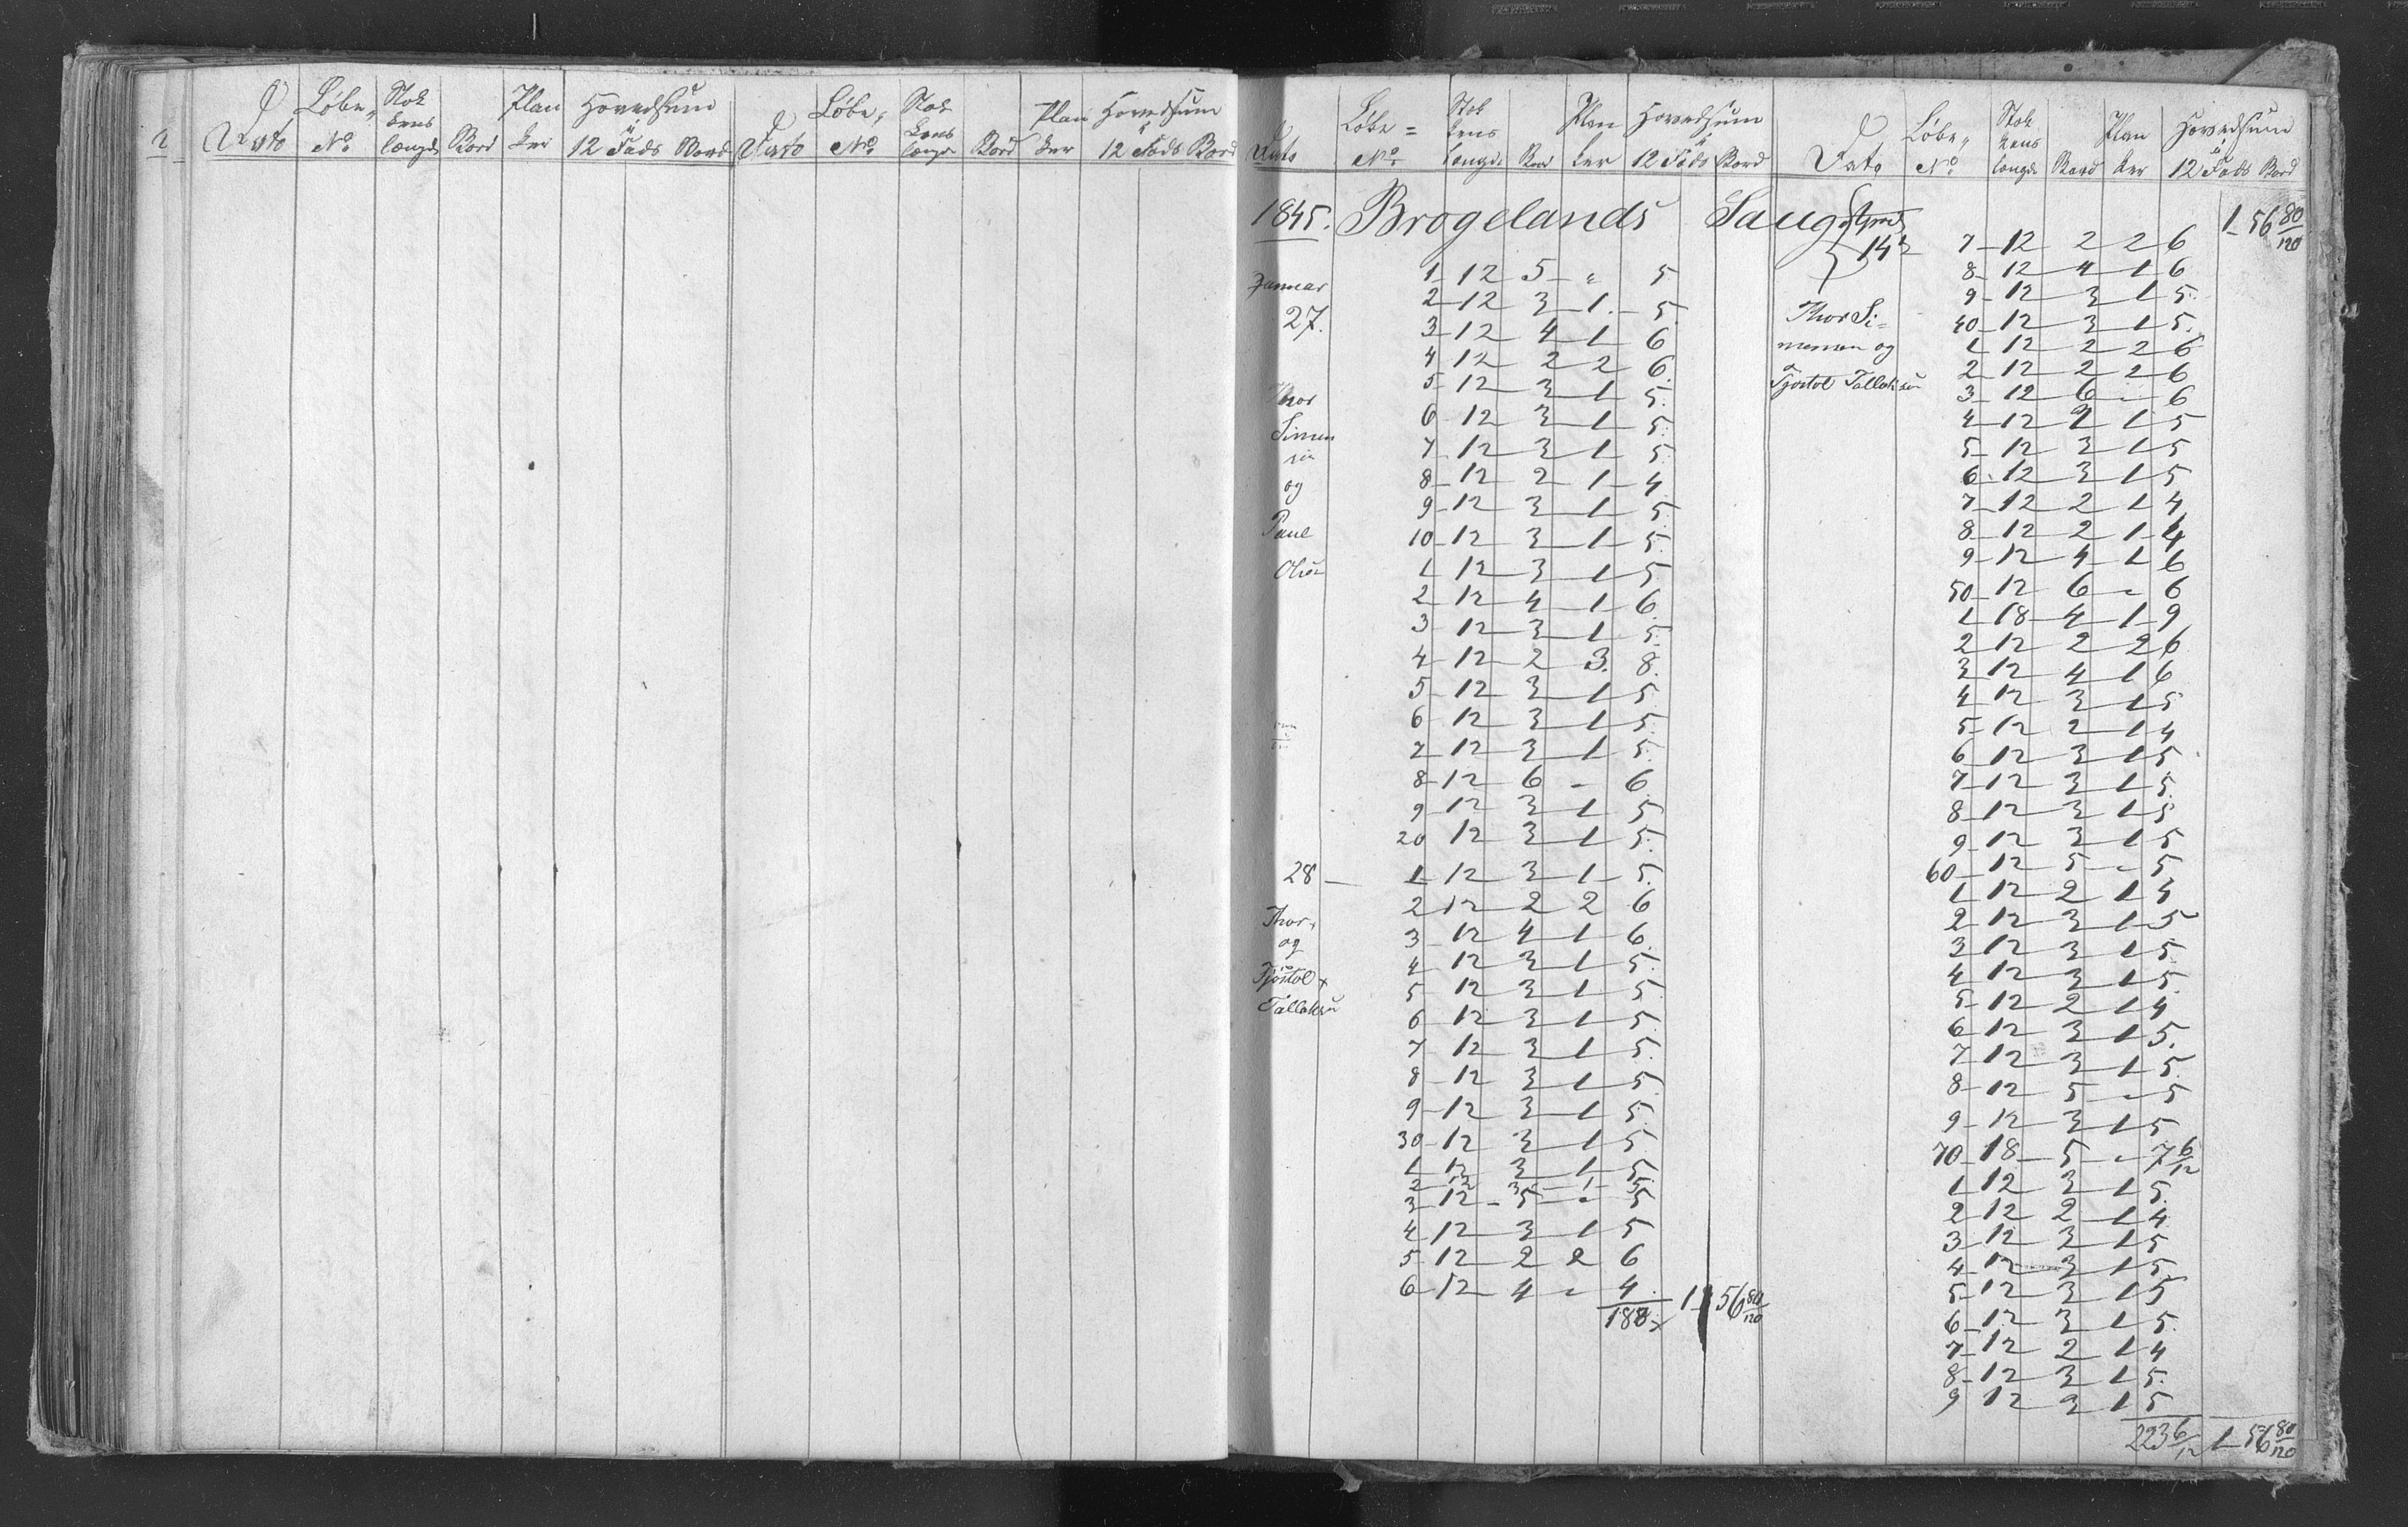 2
Dato Løbe No Stokkens længde Bord Planker Hovedsum à 12 Fods Bord Dato Løbe No Stokkens længde Bord Planker Hovedsum à 12 Fods Bord
Dato Løbe No Stokkens længde Bord Planker Hovedsum à 12 Fods Bord
1845. Brogelands Saug
Januar 1 12 5 " 5
2 12 3 1 5
27. 3 12 4 1 6
4 12 2 2 6
Thor 5 12 3 1 5
Simen 6 12 3 1 5
7 12 3 1 5
og 8 12 2 1 4
9 12 3 1 5
Paul 10 12 3 1 5
Olsen 1 12 3 1 5
2 12 4 1 6
3 12 3 1 5
4 12 2 3 8
5 12 3 1 5
6 12 3 1 5
7 12 3 1 5
8 12 6 - 6
9 12 3 1 5
20 12 3 1 5
28 1 12 3 1 5
2 12 2 2 6
Thor 3 12 4 1 6
og 4 12 3 1 5
Tjostol 5 12 3 1 5
Tallaksen 6 12 3 1 5
7 12 3 1 5
8 12 3 1 5
9 12 3 1 5
30 12 3 1 5
1 12 3 1 5
2 12 3 1 5
3 12 5 - 5
4 12 3 1 5
5 12 2 2 6
6 12 4 - 4
188 1 56 80/120
Dato Løbe No Stokkens længde Bord Planker Hovedsum à 12 Fods Bord
1 56 80/120
14 7 12 2 2 6
8 12 4 1 6
9 12 3 1 5
Thor Si= 40 12 3 1 5
mensen og 1 12 2 2 6
Tjostol Tallaksen 2 12 2 2 6
3 12 6 - 6
4 12 1 5
5 12 3 1 5
6 12 3 1 5
7 12 2 1 4
8 12 2 1 4
9 12 4 1 6
50 12 6 - 6
1 18 4 1 9
2 12 2 2 6
3 12 4 1 6
4 12 3 1 5
5 12 2 1 4
6 12 3 1 5
7 12 3 1 5
8 12 3 1 5
9 12 3 1 5
60 12 5 - 5
1 12 2 1 4
2 12 3 1 5
3 12 3 1 5
4 12 3 1 5
5 12 2 1 4
6 12 3 1 5
7 12 3 1 5
8 12 5 - 5
9 12 3 1 5
70 18 5 - 7 6/12
1 12 3 1 5
2 12 2 1 4
3 12 3 1 5
4 12 3 1 5
5 12 3 1 5
6 12 3 1 5
7 12 2 1 4
8 12 3 1 5
9 12 3 1 5
223 6/12 1 56 80/120